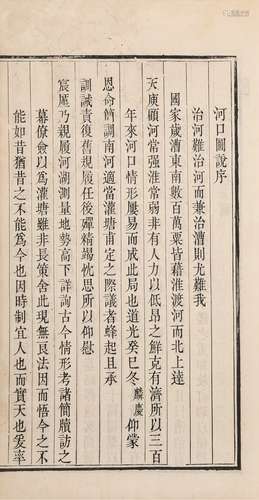 河口圖說序
治河難治河而兼治漕則尤難我
國家歲漕東南數百萬粟皆藉淮渡河而北上達
天庾顧河常強淮常弱非有人力以低昂之鮮克有濟所以三百
年來河口情形屢易而成此局也道光癸巳冬麟慶仰蒙
恩命簡調南河適當灌塘甫定之際議者蜂起且承
訓誡責復舊規履任後殫精竭忱思所以仰慰
宸廑乃親履河湖測量地勢高下詳詢古今情形考諸簡牘訪之
幕僚僉以為灌塘雖非長策舍此現無良法因而悟今之不
能如昔猶昔之不能為今也因時制宜人也而實天也爰率